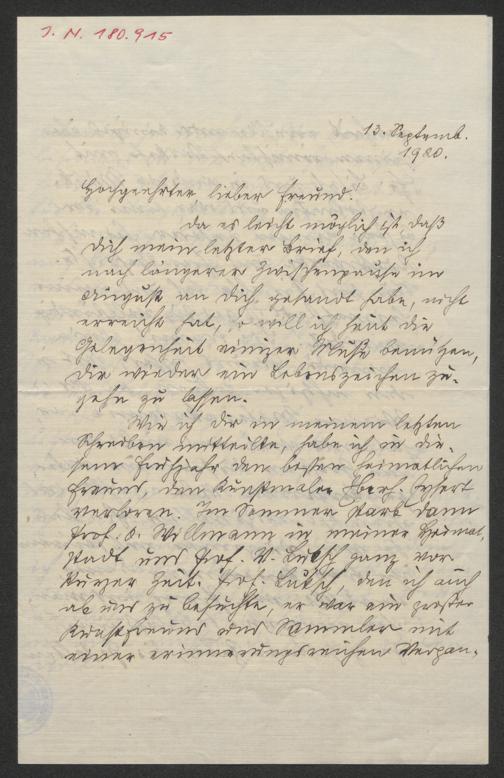 J. N. 180.915
13. Septemb.
1920.
Hochgeehrter lieber Freund!
Da es leicht möglich ist, daß
Dich mein letzter Brief, den ich
nach längerer Zwischenpause im
August an Dich gesandt habe, nicht
erreicht hat, so will ich heut die
Gelegenheit einiger Muße benützen,
Dir wieder ein Lebenszeichen zu-
gehn zu lassen.
Wie ich Dir in meinem letzten
Schreiben mitteilte, habe ich in die-
sem Frühjahr den besten heimatlichen
Freund, den Kunstmaler Eberh.
verloren. Im Sommer starb dann
Prof. O. Willmann in meiner Heimat-
stadt und Prof. V. Lutsch ganz vor
kurzer Zeit. Prof. Lutsch, den ich auch
ab und zu besuchte, er war ein großer
Kunstfreund und Sammler mit
einer erinnerungsreichen Vergan-